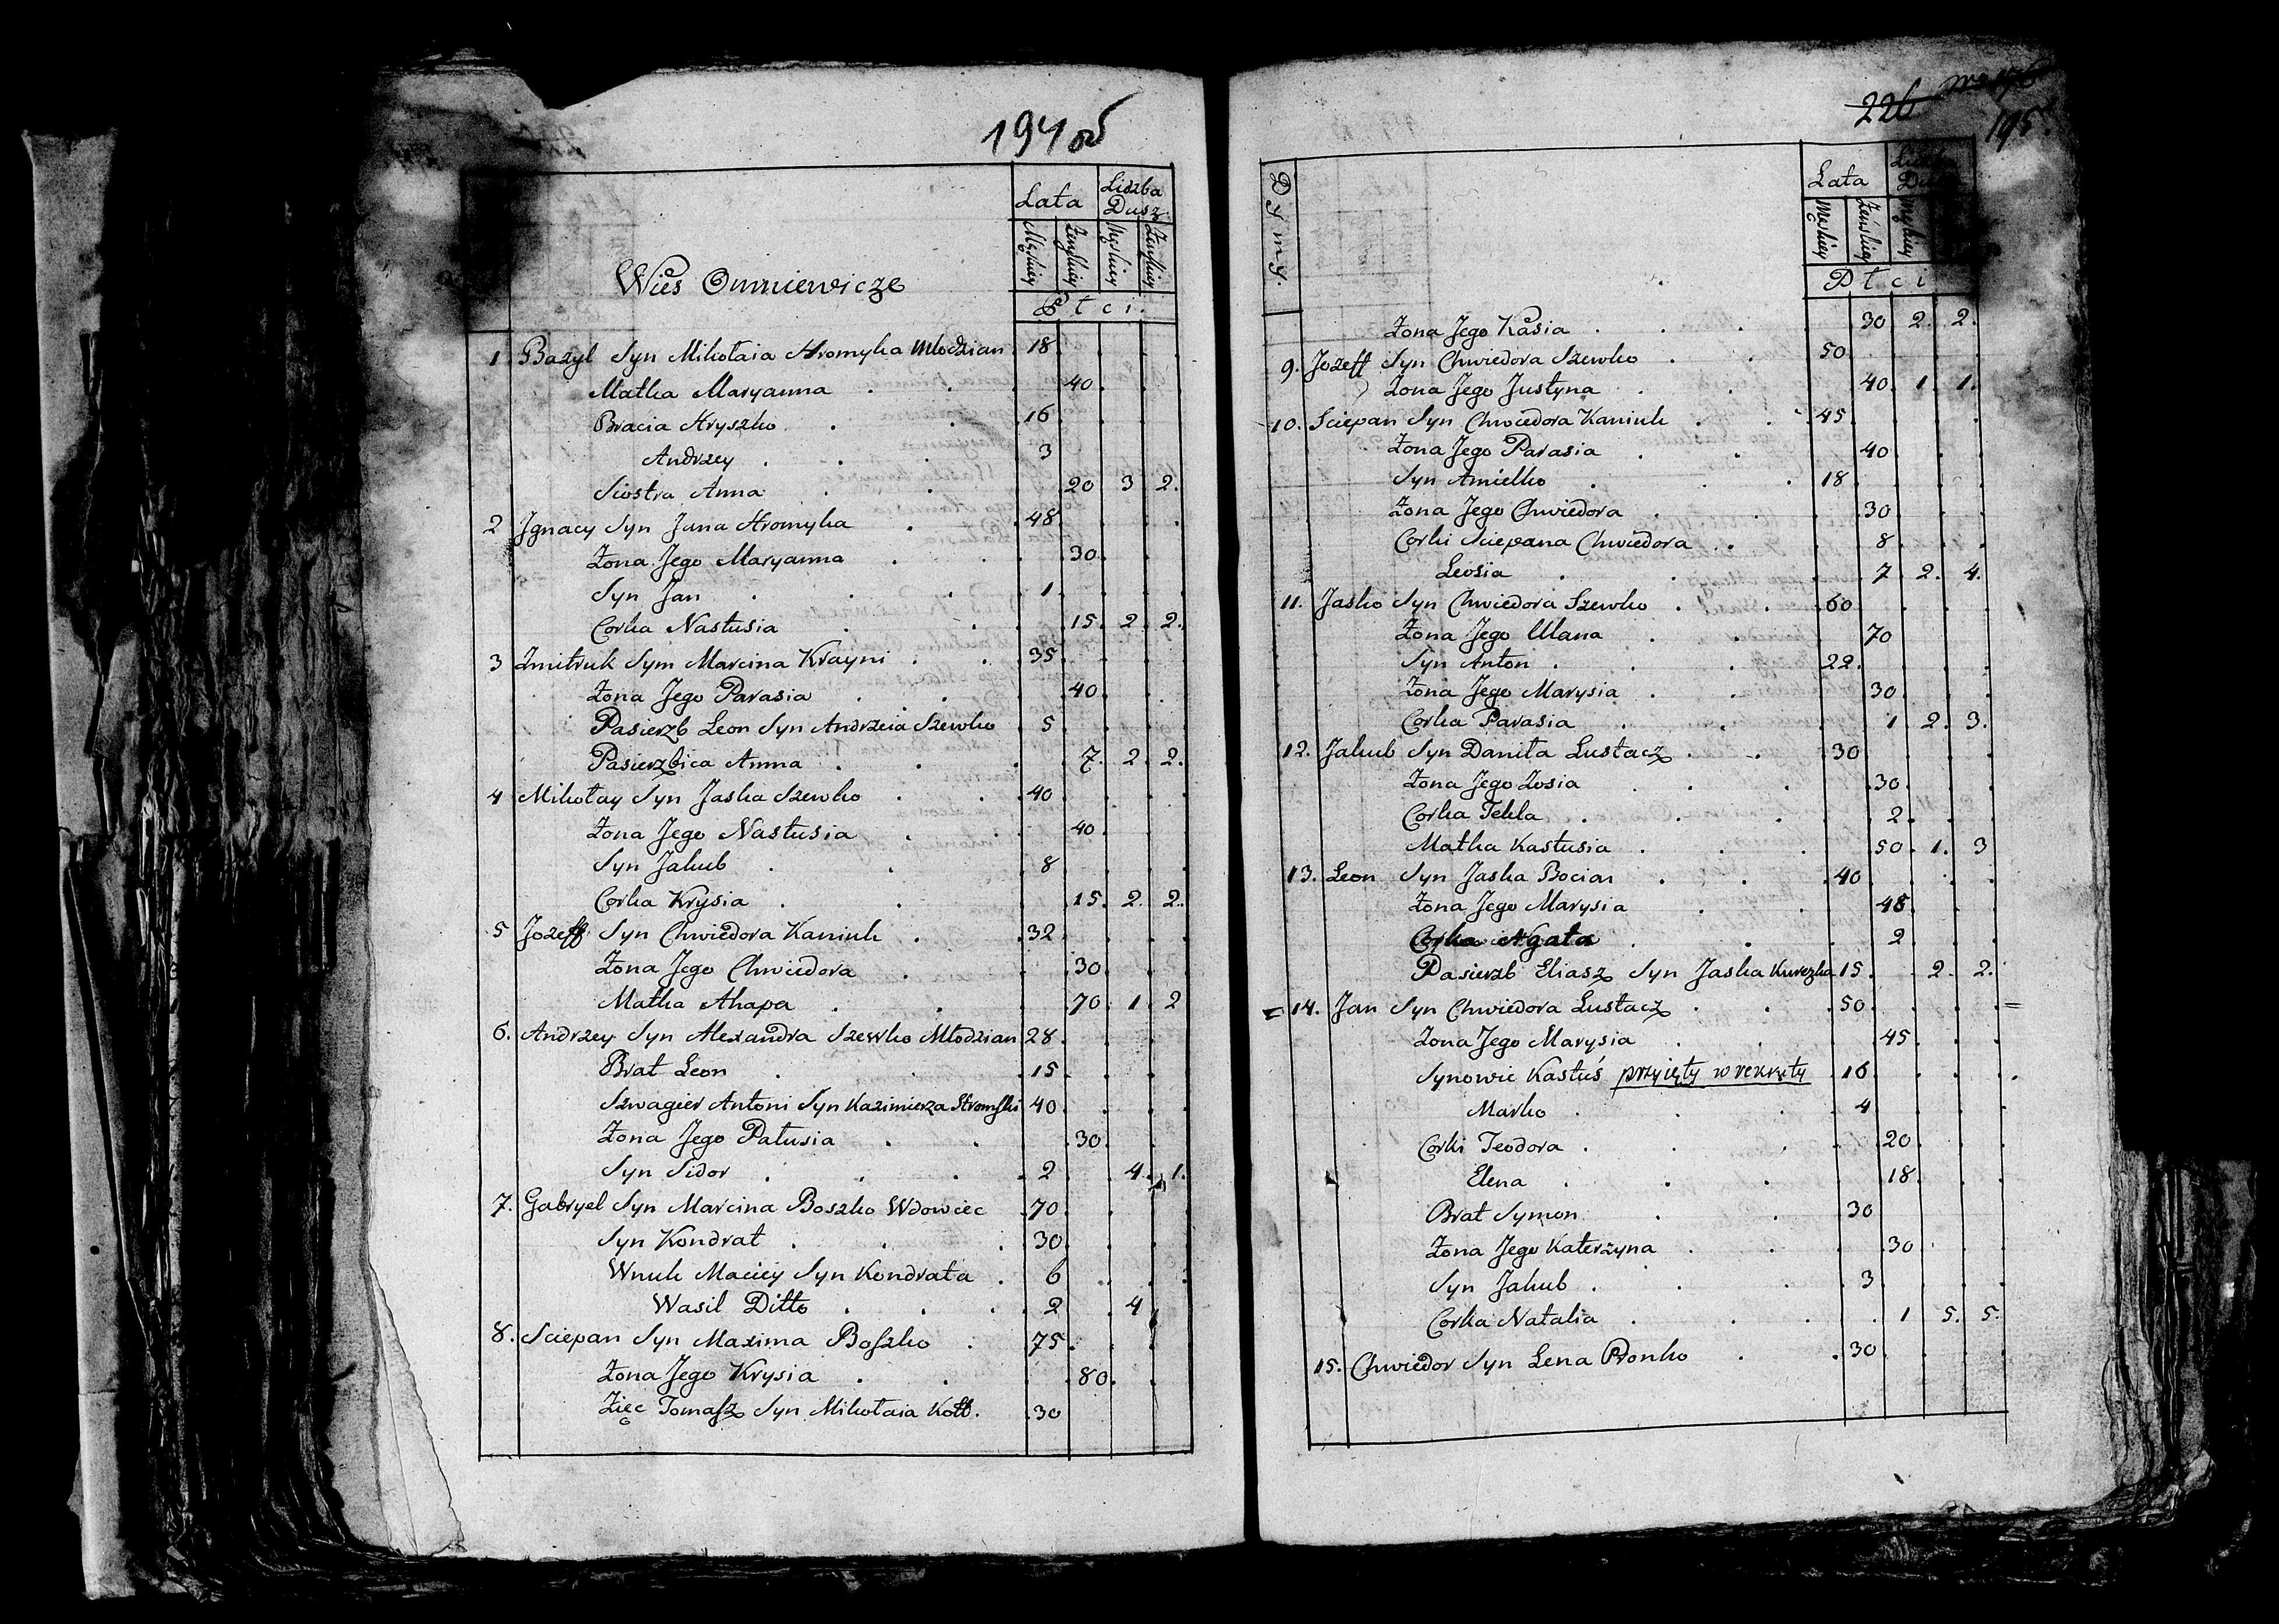 194 об
Lata Liczba Dusz
Męskiey Żenskiey Męskiey Żenskiey
Płci.
Wieś Omniewicze
1 Bazyl Syn Mikołaia Hromyka Młodzian 18
Matka Maryanna 40
Bracia Hryszko 16
Andrzey 3
Siostra Anna 20 3 2.
2 Jgnacy Syn Jana Hromyka 48
Żona Jego Maryanna 30
Syn Jan 1
Corka Nastusia 15 2 2.
3 Zmitruk Sym Marcina Krayni 35
Żona Jego Parasia 40
Pasierzb Leon Syn Andrzeia Szewko 5
Pasierzbica Anna 7 2 2.
4 Mikołay Syn Jaska Szewko 40
Żona Jego Nastusia 40
Syn Jakub 8
Corka Krysia 15 2 2.
5 Jozeff Syn Chwiedora Kaniuk 32
Żona Jego Chwiedora 30
Matka Ahapa 70 1 2
6. Andrzey Syn Alexandra Szewko Młodzian 28
Brat Leon 15
Szwagier Antoni Syn Kazimierza Hromyki 40
Żona Jego Patusia 30
Syn Sidor 2 4 1.
7. Gabryel Syn Marcina Boszko Wdowiec 70
Syn Kondrat 30
Wnuk Maciey Syn Kondrata 6
Wasil Ditto 2 4
8. Sciepan Syn Maxima Boszko 75
Żona Jego Krysia 80
Zięc Tomasz Syn Mikołaia Kott. 30
226
195
Dymy.
Lata
Męskiey Żeńskiey Męskiey
Płci
Żona Jego Kasia 30 2 2.
9. Jozeff Syn Chwiedora Szewko 50
Żona Jego Justyna 40 1 1.
10. Sciepan Syn Chwiedora Kaniuk 45
Żona Jego Parasia 40
Syn Amielko 18
Żona Jego Chwiedora 30
Corki Sciepana Chwiedora 8
Leosia 7 2. 4.
11. Jasko Syn Chwiedora Szewko 60
Żona Jego Ulana 70
Syn Anton 22
Żona Jego Marysia 30
Corka Parasia 1 2. 3.
12. Jakub Syn Daniła Lustacz 30
Żona Jego Zosia 30
Corka Tekla 2
Matka Kastusia 50 1. 3
13. Leon Syn Jaska Bocian 40
Żona Jego Marysia 48
Corka Agata 2
Pasierzb Eliasz Syn Jaska Kurezka 15 2 2.
= 14. Jan Syn Chwiedora Lustacz 50 =
Żona Jego Marysia 45
Synowie Kastuś przyięty w rekruty 16
Marko 4
Corki Teodora 20
Elena 18
Brat Symon 30
Żona Jego Katerzyna 30
Syn Jakub 3
Corka Natalia 1 5. 5.
15. Chwiedor Syn Lena Pronko 30